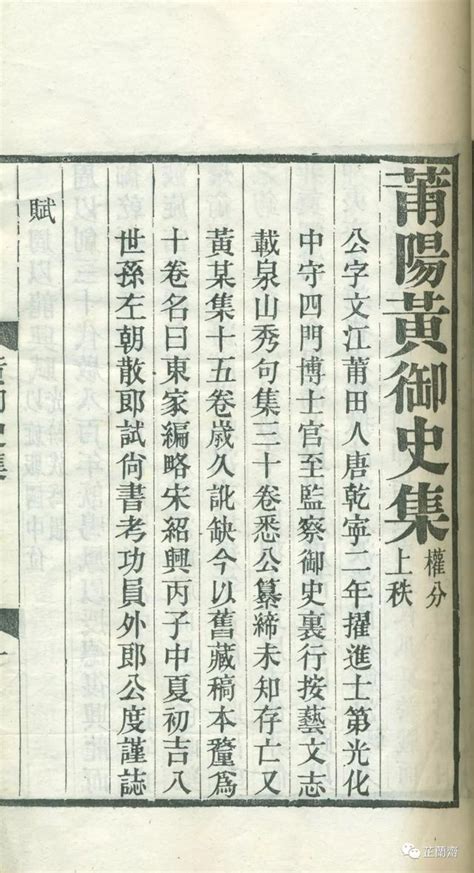 莆陽黃御史集
權分
上秩
公字文江莆田人唐乾寧二年擢進士第光化
中守四門博士官至監察御史裏行按藝文志
載泉山秀句集三十卷悉公纂締未知存亡又
黃某集十五卷歲久訛缺今以舊藏稿本釐爲
十卷名曰東家編略宋紹興丙子中夏初吉八
世孫左朝散郎試尙書考功員外郎公度謹誌
賦
芷蘭齋